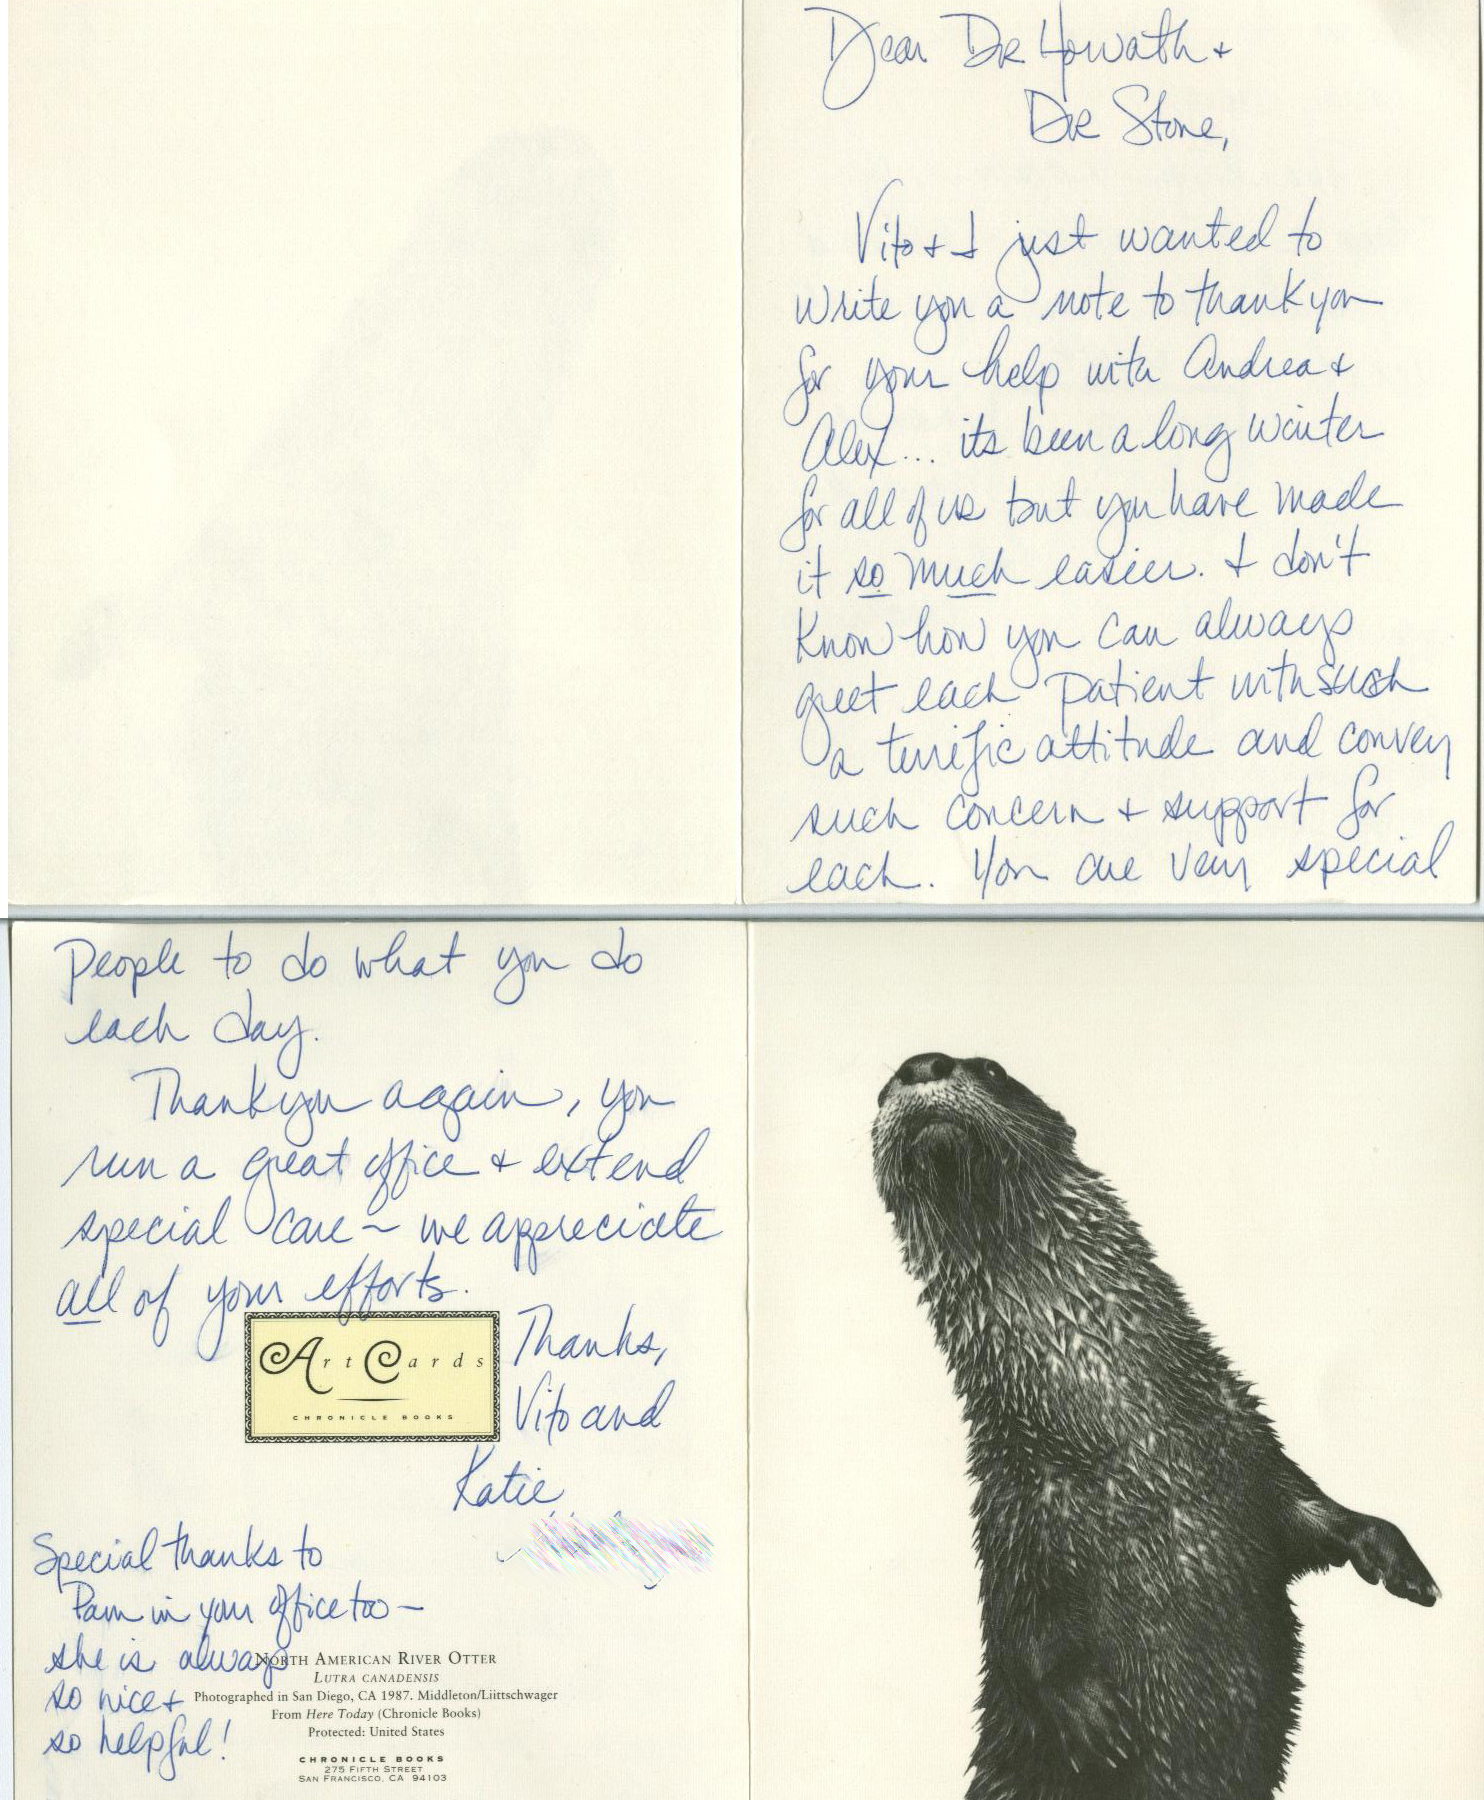 Dear DR Howath +
DR Stone,
Vito + I just wanted to
write you a note to thank you
for your help with Andrea +
Alex... its been a long winter
for all of us but you have made
it so much easier. I don't
know how you can always
greet each patient with such
a terrific attitude and convey
such concern + support for
each. You are very special
People to do what you do
each day.
Thank you again, you
run a great office + extend
special care ~ we appreciate
all of your efforts.
Art Cards
CHRONICLE BOOKS
Thanks,
Vito and
Katie
Special thanks to
Pam in your office too -
she is always
so nice +
so helpful!
NORTH AMERICAN RIVER OTTER
LUTRA CANADENSIS
Photographed in San Diego, CA 1987. Middleton/Liittschwager
From Here Today (Chronicle Books)
Protected: United States
CHRONICLE BOOKS
275 FIFTH STREET
SAN FRANCISCO, CA 94103